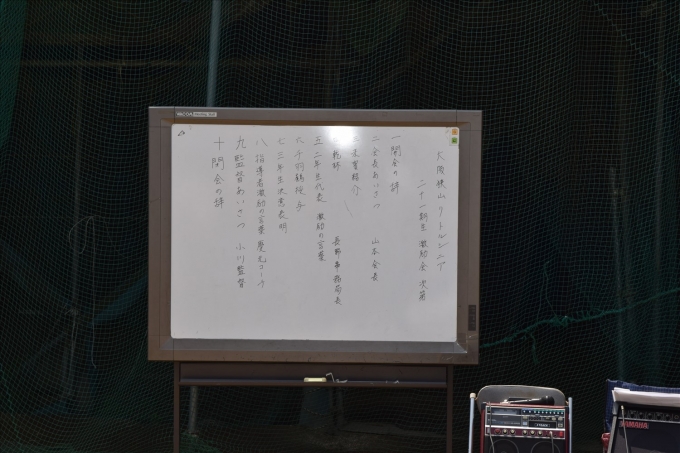 大阪狭山リトルシニア
二十一期生 激励会 次第
一 開会の辞
二 会長あいさつ 山本会長
三 来賓紹介
祝辞 長野事務局長
五 二年生代表 激励の言葉
六 千羽鶴授与
七 三年生決意表明
八 指導者激励の言葉 慶元コーチ
九 監督あいさつ 小川監督
十 閉会の辞
YAMAHA